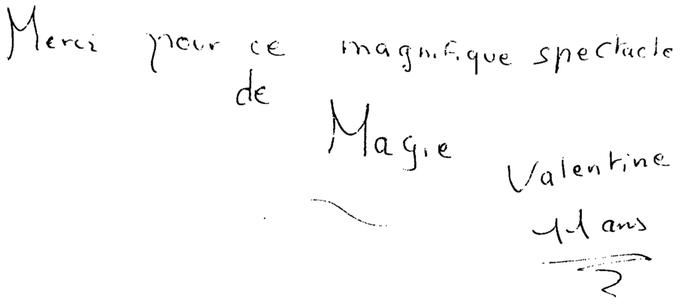 Merci pour ce magnifique spectacle
de
Magie
Valentine
11 ans